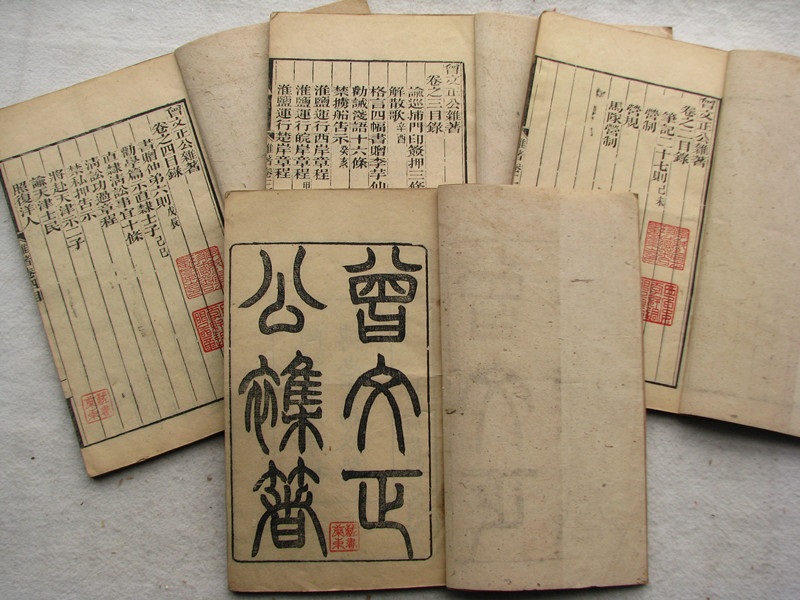 曾文正公雜著
卷之四目錄
書贈仲弟六則戊辰
勸學篇示直隸士子己巳
直隸清訟事宜十條
清訟功過章程
禁私押告示
將赴天津示二子
諭天津士民
照復洋人
雜著卷四目
曾文正公雜著
卷之三目錄
諭巡捕門印簽押三條
解散歌辛酉
格言四幅書贈李芋仙
勸誡淺語十六條
禁擄船告示癸亥
淮鹽運行西岸章程
淮鹽運行皖岸章程甲
淮鹽運行楚岸章程
雜著卷三
曾文正公雜著
卷之二目錄
筆記二十七則己未
營制
營規
馬隊營制
曾文正
公襍箸